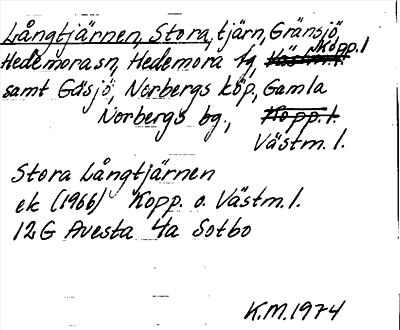 Långtjärnen, Stora, tjärn, Gränsjö,
Hedemora sn, Hedemora fg, Kopp. l
samt Gåsjö, Norbergs köp, Gamla
Norbergs bg., Kopp. l.
Västm. l.
Stora Långtjärnen
ek (1966) Kopp. o. Västm. l.
12G Avesta 4a Sotbo
K.M. 1974